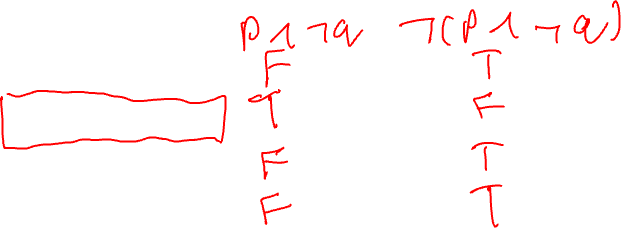 p ∧ ¬q ¬(p ∧ ¬q)
F T
T F
F T
F T